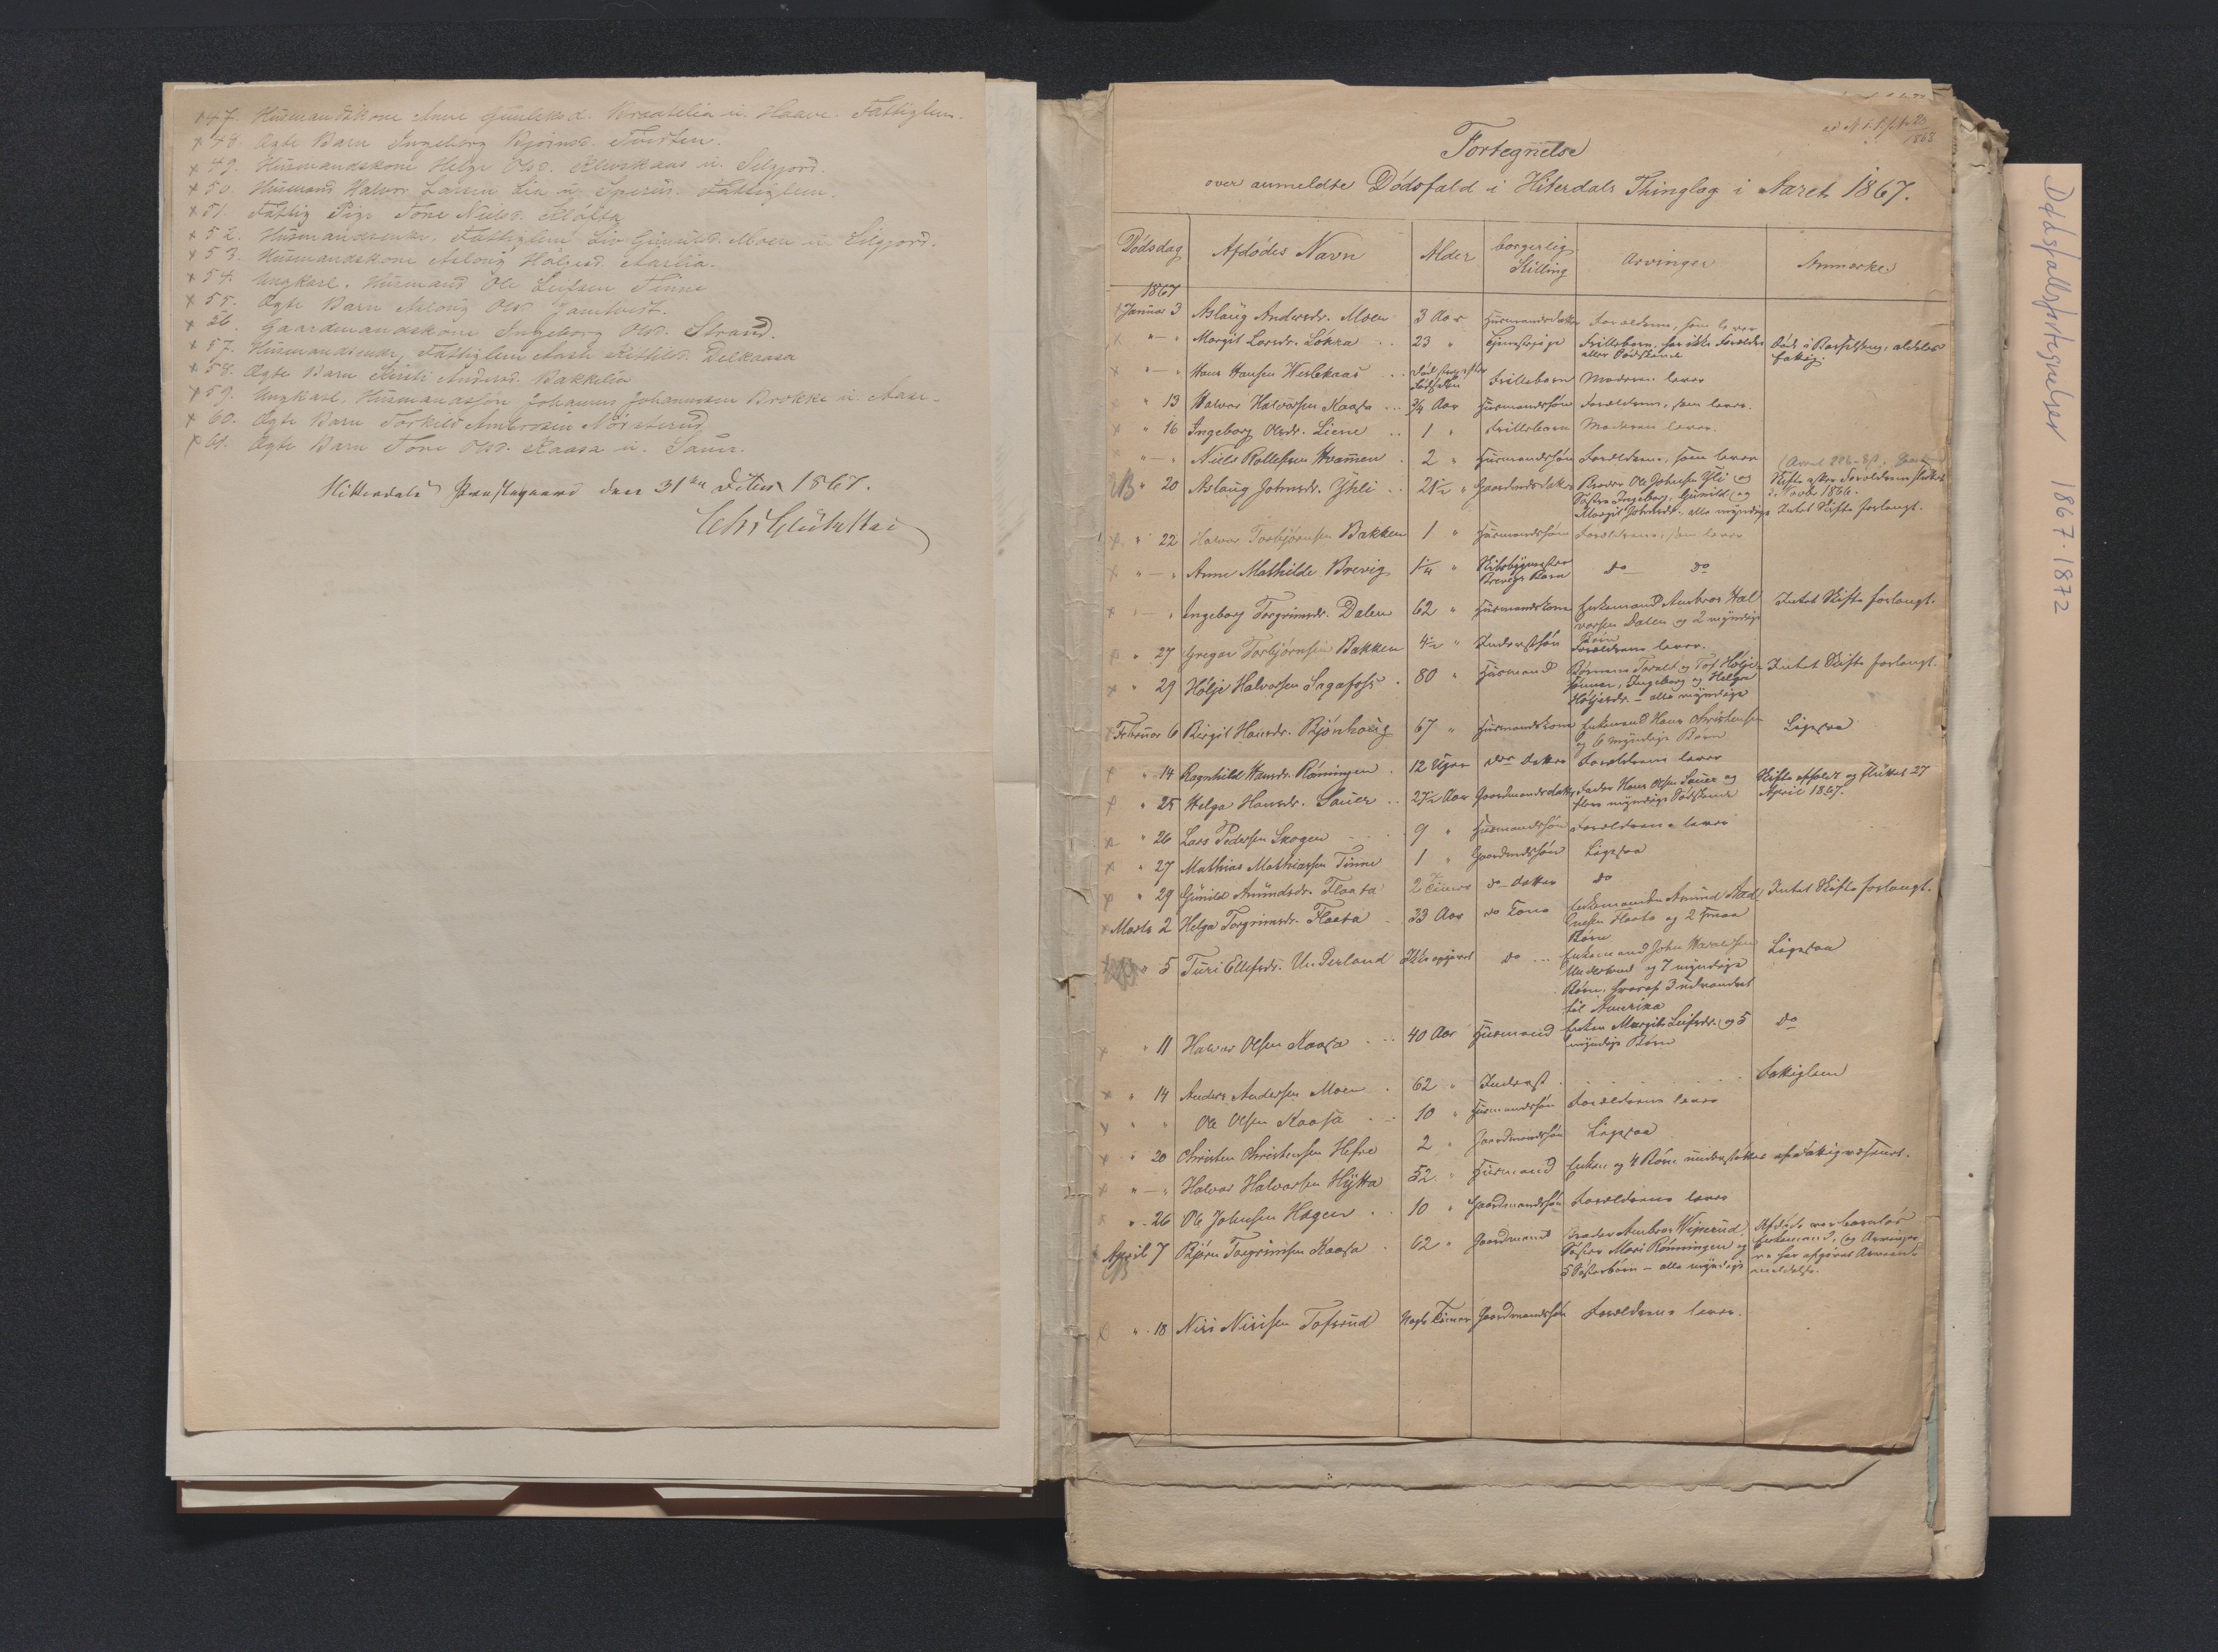 47. Husmandskone Anne Gunleksd. Kreatelia u. Haave. Fattiglem.
48. Ægte Barn Ingeborg Bjørnsd. Tveiten.
49. Husmandskone Helge Olsd. u. Silgjord.
50. Husmand Halvor Larsen Lia u. Fattiglem.
51. Fattig Pige Tone Nielsd. Kløfta
52. Husmandsenke, Fattiglem Liv Gunulds. Moen u. Silgjord.
53. Husmandskone Aslaug Høljesd. Aarlia.
54. Ungkarl, Husmand Ole Leifsen Tinne
55. Ægte Barn Aslaug Olsd. Jamtveit.
56. Gaardmandskone Ingeborg Olsd. Strand.
57. Husmandsenke, Fattiglem Aase Kittilsd. Delkaasa
58. Ægte Barn Kirsti Andersd. Bakkelia
59. Ungkarl, Husmandssøn Johannes Johannesen Brokke u.
60. Ægte Barn Torkild Ambrosen Nørsterud
61. Ægte Barn Tone Olsd. Kaasa u. Sauer.
Hitterdals Præstegaard den 31te 1867.
Fortegnelse
over anmeldte Dødsfald i Hiterdals Thinglag i Aaret 1867.
Dødsdag Afdødes Navn Alder borgerlig Stilling Arvinger Anmærkn.
1867
Januar 3 Aslaug Andersdr. Moen 3 Aar Husmandsdatter Forældrene, som lever
" — " Margit Larsdr. Løkra 23 " Tjenestepige Frillebarn, har ikke Forældre eller Sødskende Død i Barselseng, aldeles fattig.
" — " Hans Hansen Haslekaas Død strax efter Fødselen Frillebarn Moderen lever
" 13 Halvor Halvorsen Kaasa 3/4 Aar Husmandssøn Forældrene, som lever.
" 16 Ingeborg Olsdr. Liene 1 " Frillebarn Moderen lever.
" — " Niels Rollefsen Hvammen 2 " Husmandssøn Forældrene, som lever
B " 20 Aslaug Johnsdr. Yhli 21 1/2 " Gaardmdsdatter Broder Ole Johnsen Yli og
Søstre Ingeborg, Gunild og Margit Johnsdr. alle myndige Skifte efter Forældrene sluttet 1866. Intet Skifte forlangt.
" 22 Halvor Torbjørnsen Bakken 1 " Husmandssøn Forældrene, som lever
" — " Anne Mathilde Brevig 1 1/4 " Skibsbygmester Brevigs Barn do do
" — " Ingeborg Torgrimsdr. Dalen 62 " Husmandskone Enkemand Ambros Halvorsen Dalen og 2 myndige Børn Intet Skifte forlangt.
" 27 Gregar Torbjørnsen Bakken 4 1/2 " Inderstsøn Forældrene lever.
" 29 Hølje Halvorsen Sagafoss 80 " Husmand Børnene Torald og Tof Høljessønner, Ingeborg og Helga Høljesdr. – alle myndige Intet Skifte forlangt.
Februar 6 Birgit Hansdr. Bjønhaug 67 " Husmandskone Enkemand Hans Christensen og 6 myndige Børn Ligesaa
" 14 Ragnhild Hansdr. Rønningen 12 Uger do Datter Forældrene lever
" 25 Helga Hansdr. Sauer 27 1/2 Aar Gaardmandsdatter Fader Hans Olsen Sauer og flere myndige Sødskende Skifte afholdt og sluttet 27 April 1867.
" 26 Lars Pedersen Skogen 9 " Husmandssøn Forældrene lever
" 27 Mathias Mathiassen Tinne 1 " Gaardmdssøn Ligesaa
" 29 Gunild Amundsdr. Flaata 2 Timer do Datter do
Marts 2 Helga Torgrimsdr. Flaata 33 Aar do Kone Enkemanden Amund Flaata og 2 smaa Børn Intet Skifte forlangt.
" 5 Turi Ellefsdr. Underland Ikke opgivet do Enkemand John Haraldsen Underland og 7 myndige Børn, hvoraf 3 udvandret til Amerika Ligesaa
" 11 Halvor Olsen Kaasa 40 Aar Husmand Enken Margit Leifsdr. og 5 myndige Børn do
" 14 Anders Andersen Moen 62 " Inderst Fattiglem
" " Ole Olsen Kaasa 10 " Husmandssøn Forældrene lever
" 20 Christen Christensen Hefre 2 " Gaardmandssøn Ligesaa
" — " Halvor Halvorsen Hytta 52 " Husmand Enken og 4 Børn understøttes af Fattigvæsenet.
" 26 Ole Johnsen Hagen 10 " Gaardmandssøn Forældrene lever
April 7 Bjørn Torgrimsen Kaasa 62 " Gaardmand Broder Ambros Wiperud, Søster Mari Rønningen og 5 Søsterbørn – alle myndige Afdøde var barnløs Enkemand, og Arvingerne har afgivet
" 18 Niri Nirisen Tofsrud Nogle Timer Gaardmandssøn Forældrene lever.
Dødsfallsfortegnelser 1867-1872